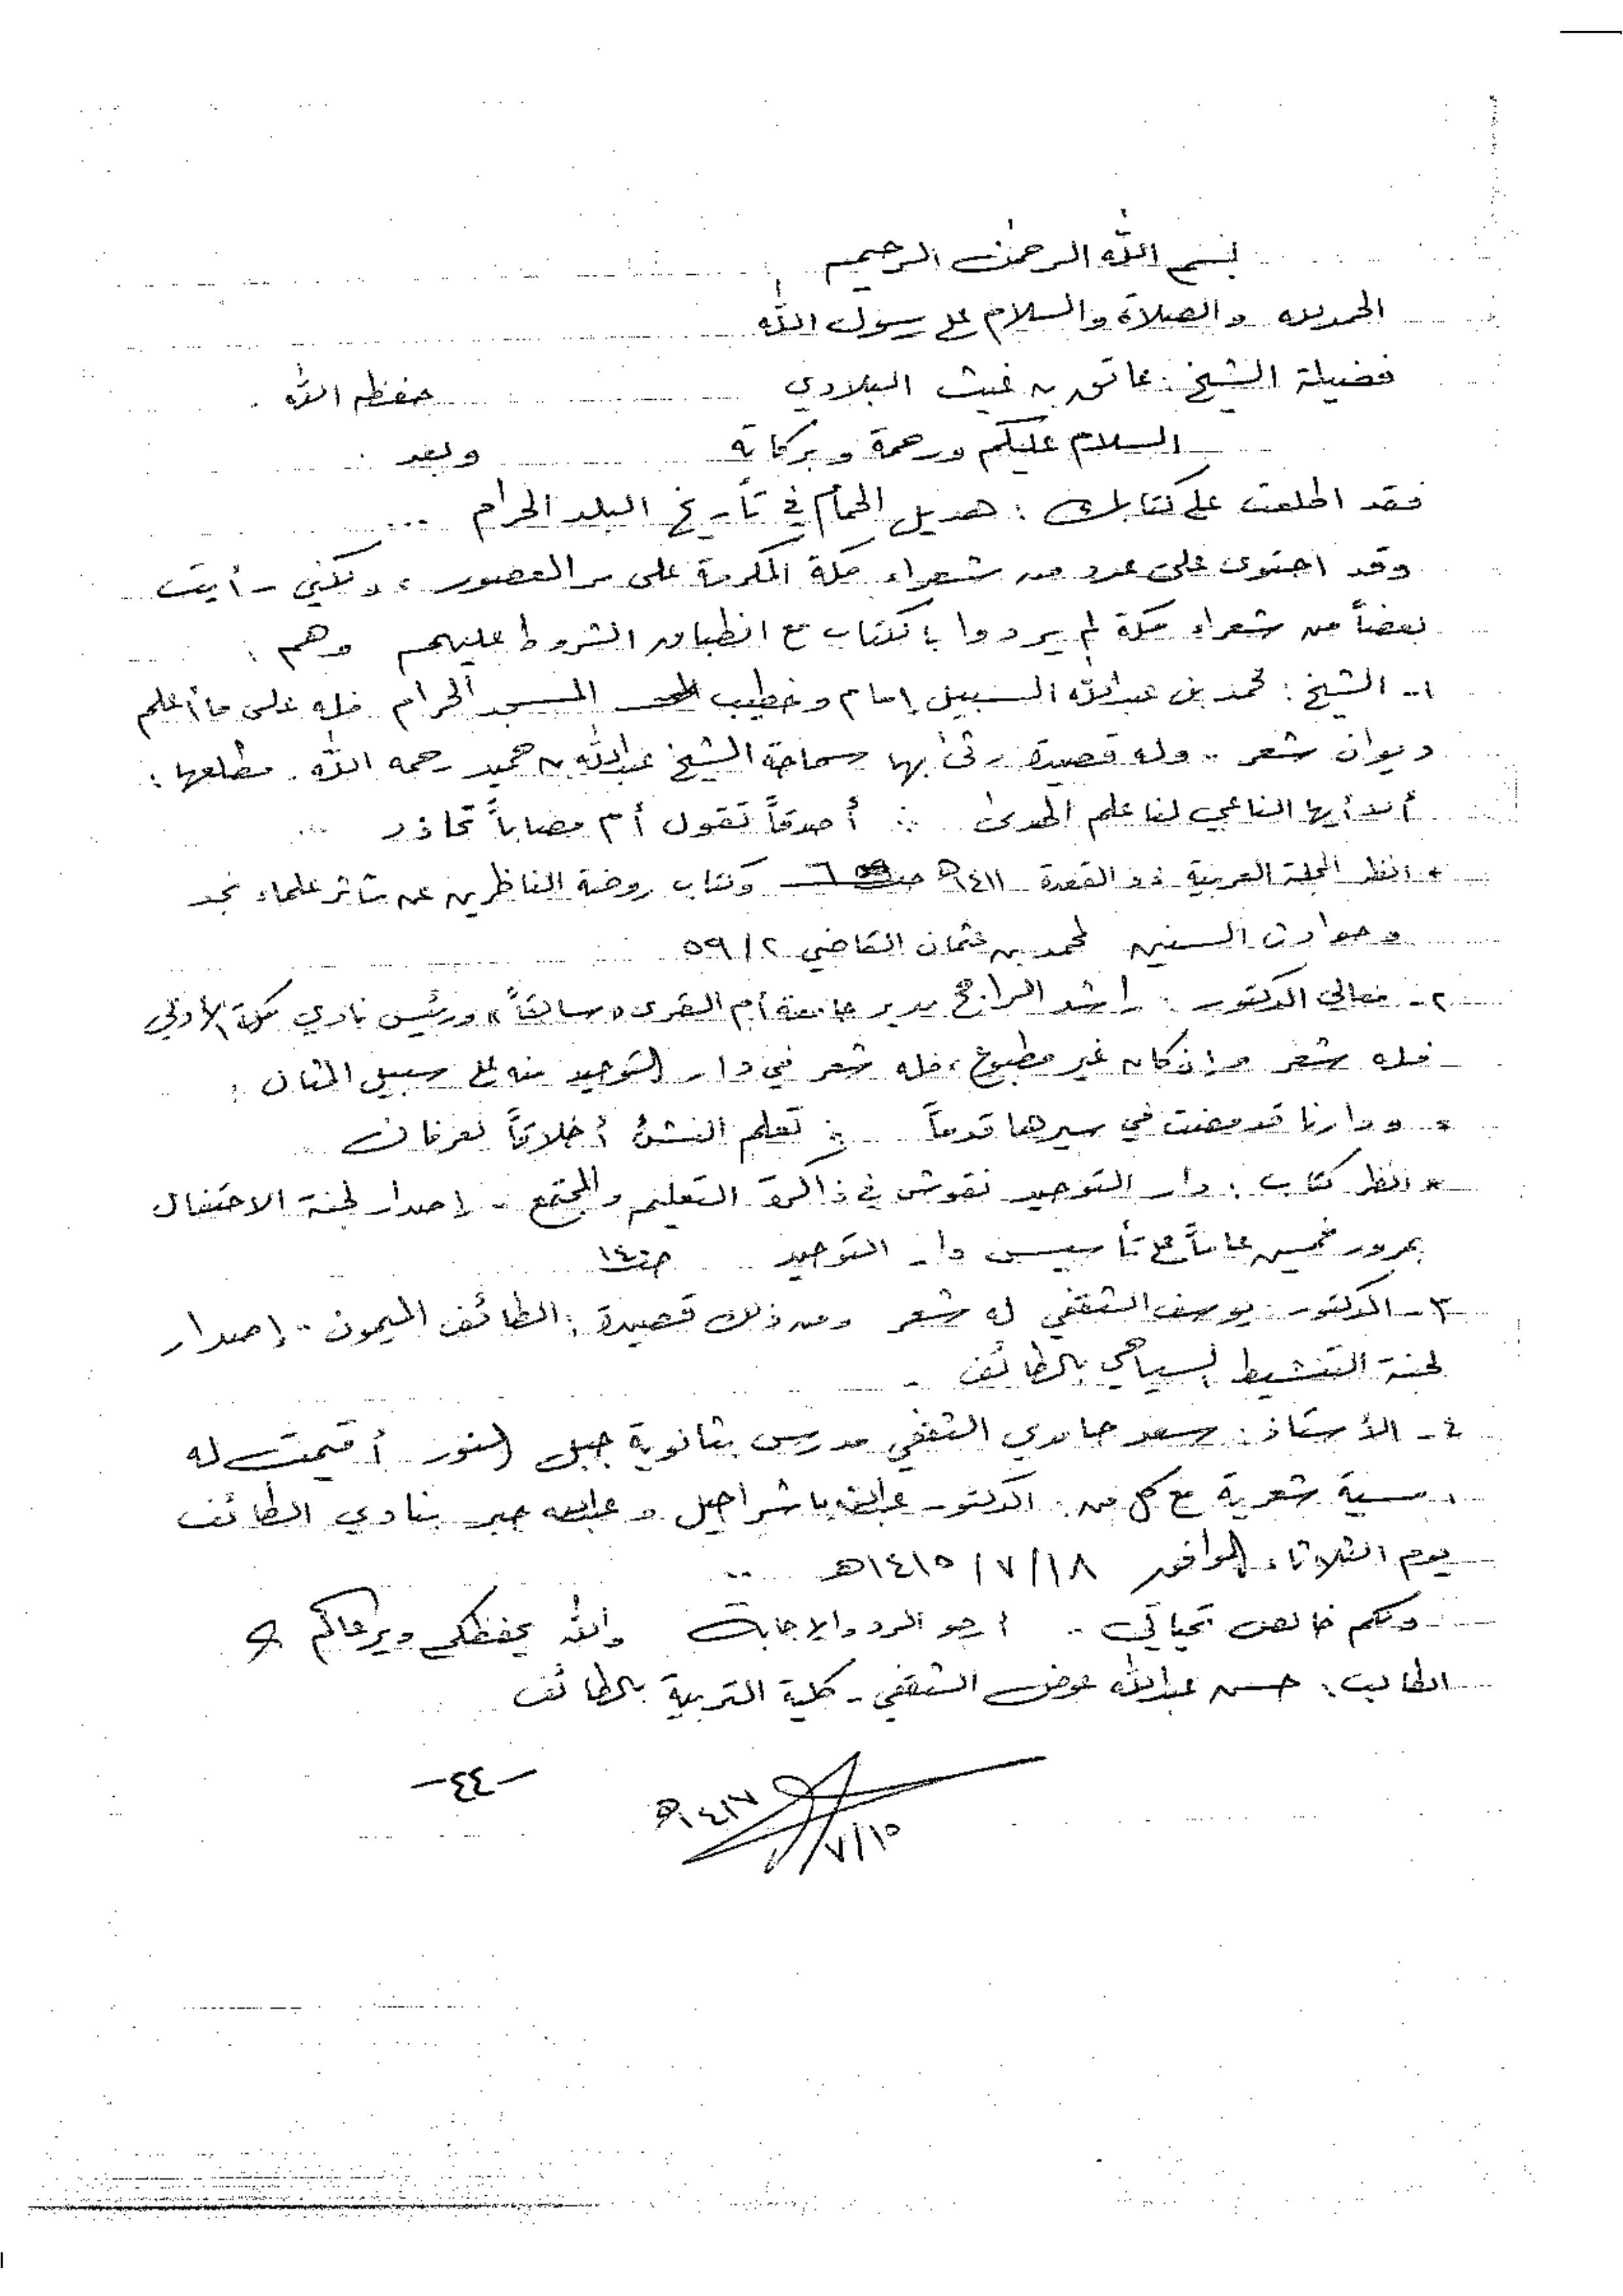 بسم الله الرحمن الرحيم
الحمد لله والصلاة والسلام على رسول الله
فضيلة الشيخ : عاتق بن غيث البلادي حفظه الله .
السلام عليكم ورحمة وبركاته وبعد .
فقد اطلعت على كتابك : هديل الحمام في تأريخ البلد الحرام ...
وقد احتوى على عدد من شعراء مكة المكرمة على مر العصور ، ولكني رأيت
بعضاً من شعراء مكة لم يردوا بالكتاب مع انطباق الشروط عليهم وهم :
١- الشيخ : محمد بن عبدالله السبيل إمام وخطيب المسجد الحرام فله على ما أعلم
ديوان شعر .. وله قصيدة رثى بها سماحة الشيخ عبدالله بن حميد رحمه الله . مطلعها :
ألا أيها الناعي لنا علم الهدى ∴ أصدقاً تقول أم مصاباً تحاذر ...
* انظر المجلة العربية ذو القعدة ١٤١١هـ وكتاب روضة الناظرين عن مآثر علماء نجد
وحوادث السنين لمحمد بن عثمان القاضي ٢/٥٩
٢- معالي الدكتور : راشد الراجح مدير جامعة أم القرى «سابقاً» ورئيس نادي مكة الأدبي
فله شعر وإن كان غير مطبوع ، فله شعر في دار التوحيد منه على سبيل المثال :
* ودارنا قد مضت في سيرها قدماً ∴ تعلم النشئ أخلاقاً لعرفان ..
* انظر كتاب : دار التوحيد نقوش في ذاكرة التعليم والمجتمع . إصدار لجنة الاحتفال
بمرور خمسين عاماً على تأسيس دار التوحيد ص١٤
٣- الدكتور : يوسف الثقفي له شعر ومن ذلك قصيدة : الطائف الميمون .. إصدار
لجنة التنشيط السياحي بالطائف .
٤- الأستاذ : سعد حامدي الثقفي مدرس بثانوية جبل النور أقيمت له
أمسية شعرية مع كل من : الدكتور عبدالله باشراحيل وعبدالله جبر بنادي الطائف
يوم الثلاثاء الموافق ١٨/٧/١٤١٥هـ ..
ولكم خالص تحياتي .. أرجو الرد والإجابة والله يحفظكم ويرعاكم
الطالب : حسن عبدالله عوض الثقفي - كلية التربية بالطائف
١٥/٧/١٤١٧هـ
-٤٤-